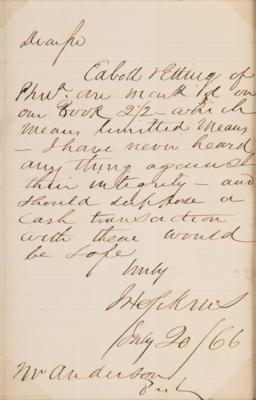 Dear Sir
Cabott & Etting of
Phila. are mark'd on
our Book 2½ - which
Means limitted Means
- I have never heard
any thing against
their integrity - and
should suppose a
cash transaction
with them would
be safe
Truly
July 20/66
Mr Anderson